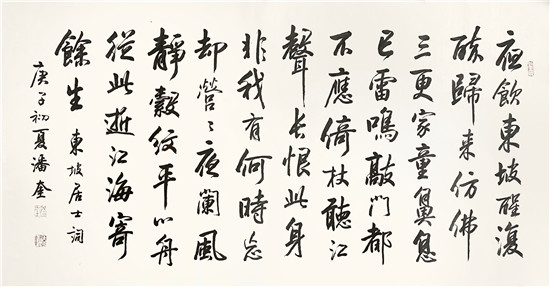 夜飲東坡醒復
醉歸来仿佛
三更家童鼻息
已雷鳴敲門都
不應倚杖聽江
聲长恨此身
非我有何時忘
却營々夜闌風
靜縠紋平小舟
從此逝江海寄
餘生 東坡居士詞
庚子初夏潘奎